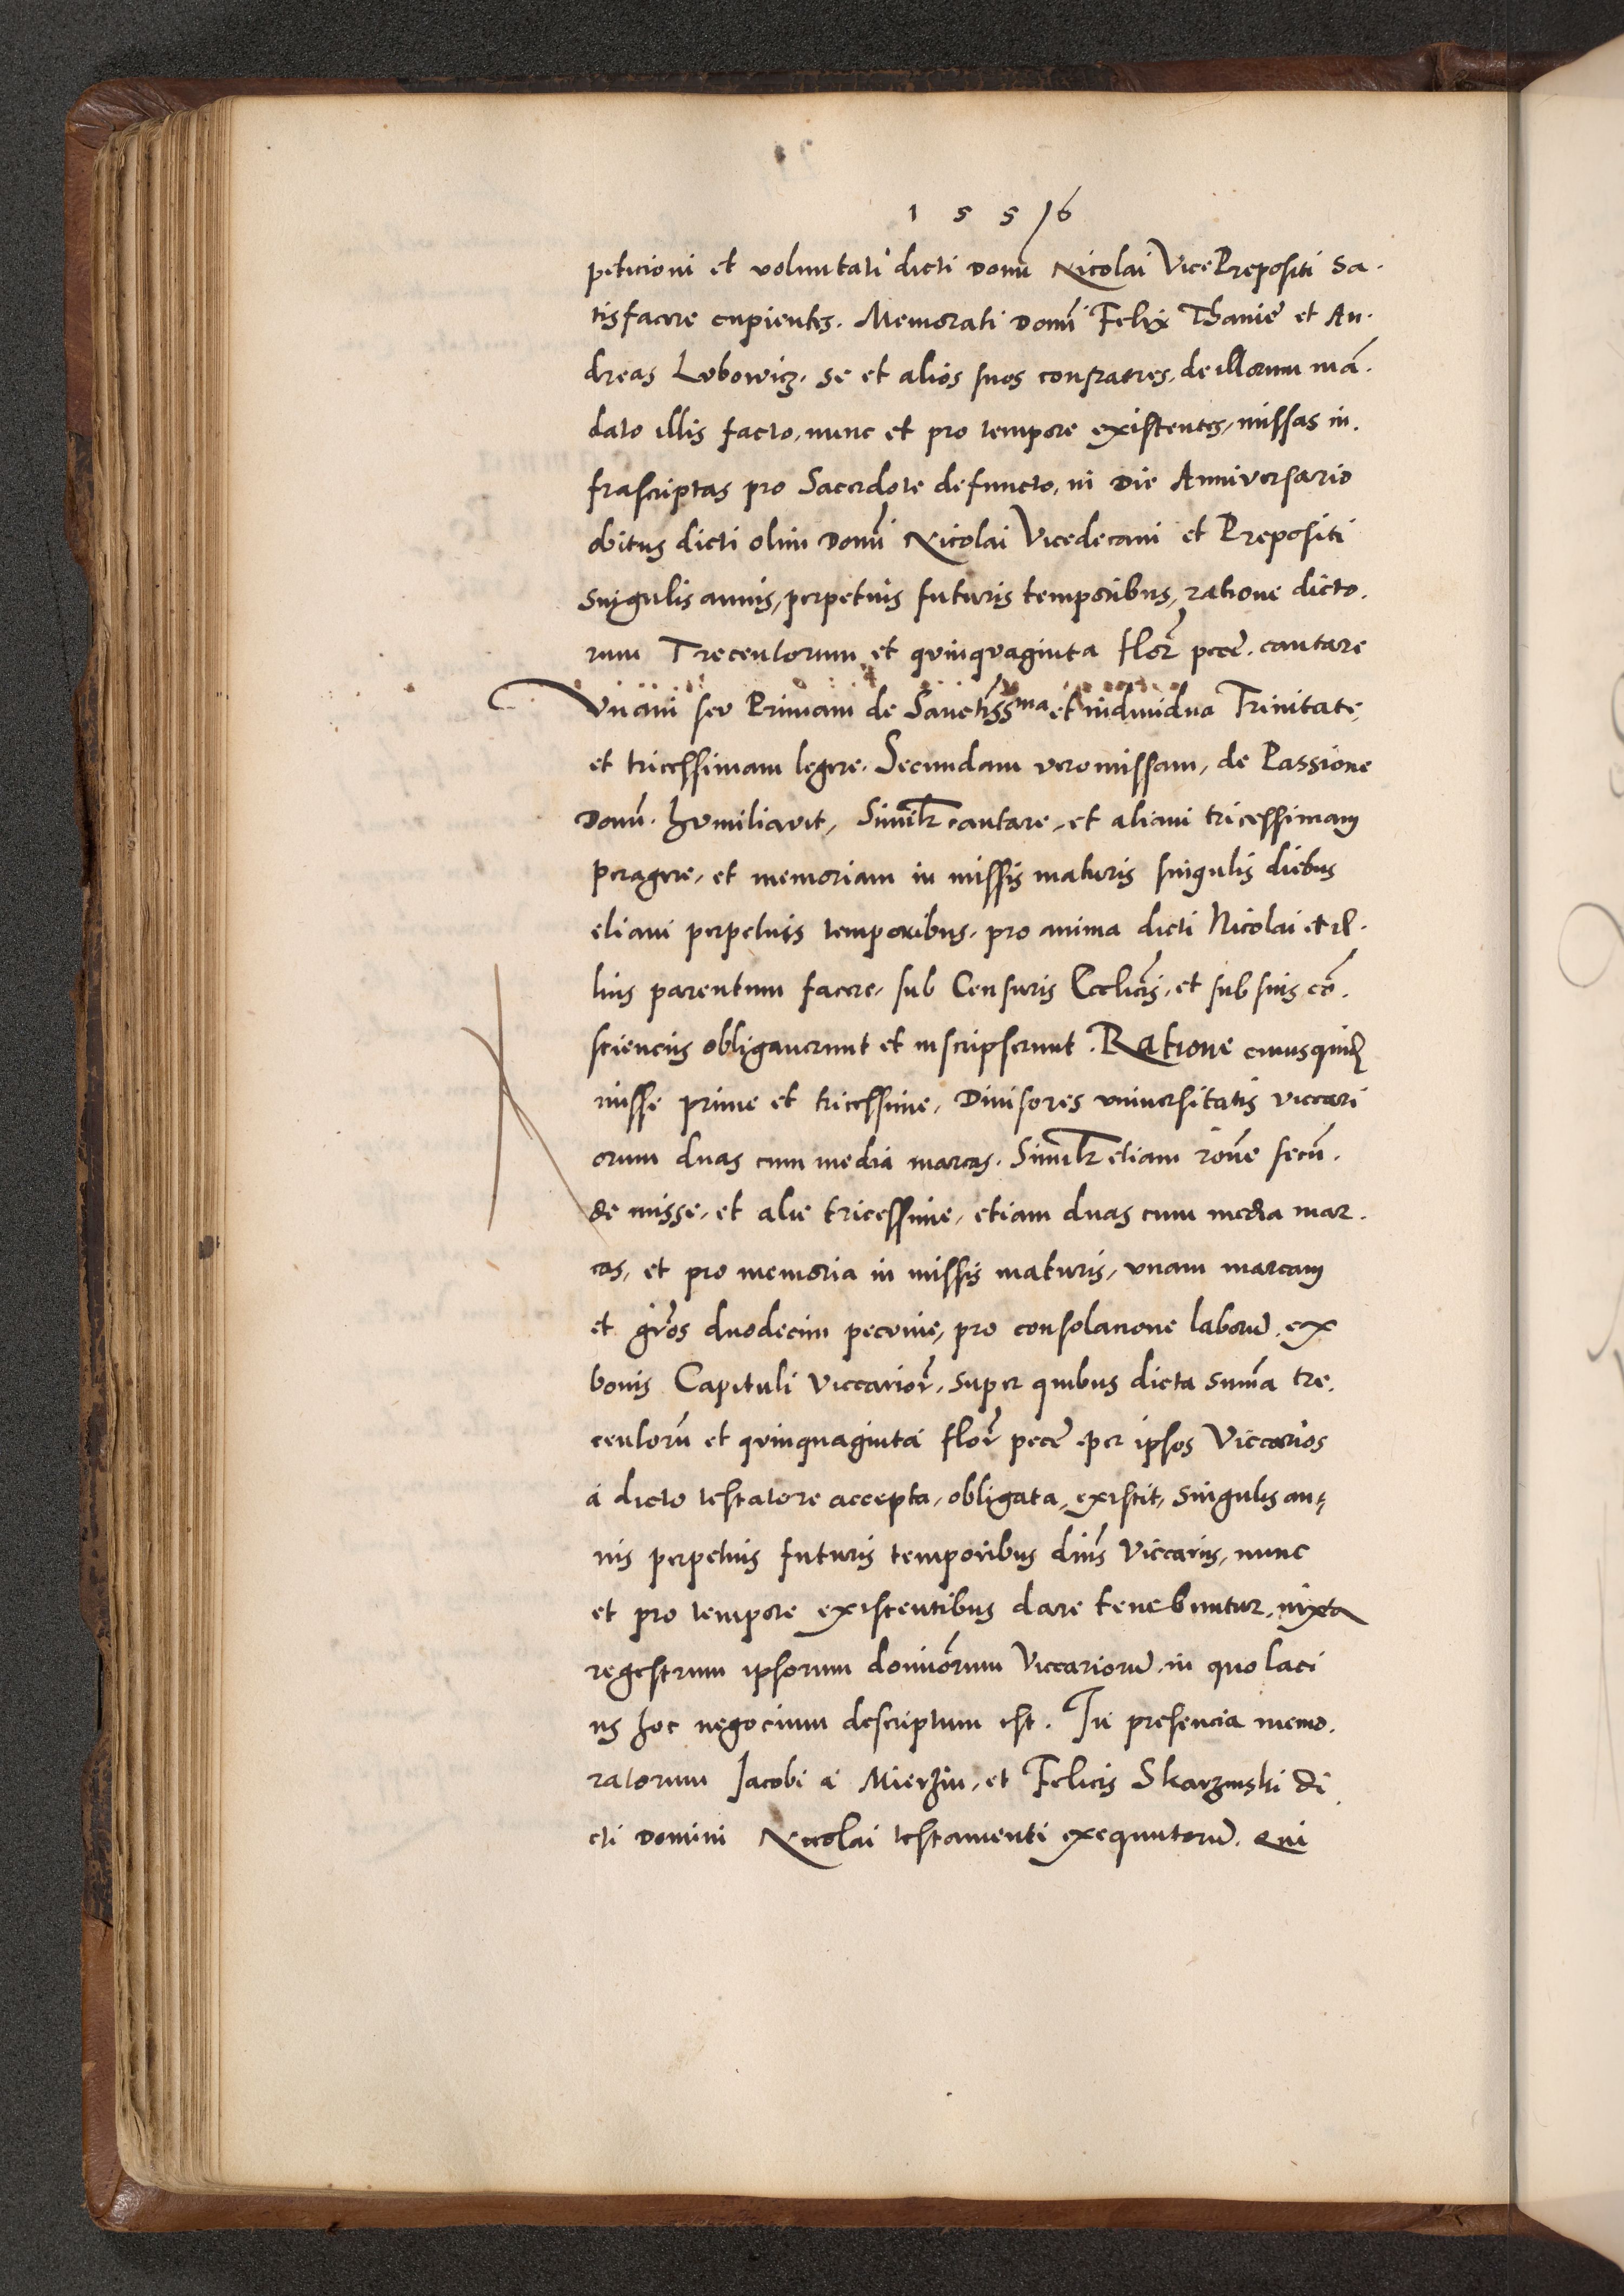 1 5 5 6
peticioni et voluntati dicti Domi Nicolai VicePrepositi Sa.
tisfacere cupientes. Memorati Domi Felix Thanie et An.
dreas Lubowicz. Se et alios suos confratres. de illorum mā.
dato illis facto, nunc et pro tempore existentes, missas in.
frascriptas pro Sacerdote defuncto, in Die Anniversario
obitus dicti olim Domi Nicolai Vicedecani et Prepositi
Singulis annis, perpetuis futuris temporibus, ratione dicto.
rum Trecentorum et quinquaginta flor pecē. cantare
Vnam seu Primam de Sanctissma et individua Trinitate,
et tricessimam legere. Secundam vero missam, de Passione
Domī. humiliavit, Similr cantare, et aliam tricessimam
peragere, et memoriam in missis maturis singulis diebus
etiam perpetuis temporibus. pro anima dicti Nicolai et il.
lius parentum facere, sub Censuris Ecclicis, et sub suis cō.
scienciis obligaverunt et inscripserunt. Ratione cuiusquidē
misse prime et tricessime, Divisores universitatis viccari
orum duas cum media marcas. Similr etiam rōne secūn.
de misse, et alie tricessime, etiam duas cum media mar.
cas, et pro memoria in missis maturis, vnam marcam
et grōs duodecim pecunie, pro consolacione laborū. ex
bonis Capituli viccarior, super quibus dicta summa tre.
centorū et quinquaginta flor pecē per ipsos Viccarios
a dicto testatore accepta, obligata, existit, Singulis an:
nis perpetuis futuris temporibus dnis Viccariis, nunc
et pro tempore existentibus dare tenebuntur, iuxta
regestrum ipsorum dominorum Viccariorū. in quo laci
us hoc negocium descriptum est. In presencia memo.
ratorum Jacobi a Mierzin, et Felicis Skarzinski di
cti Domini Nicolai testamenti exequutorū. Qui